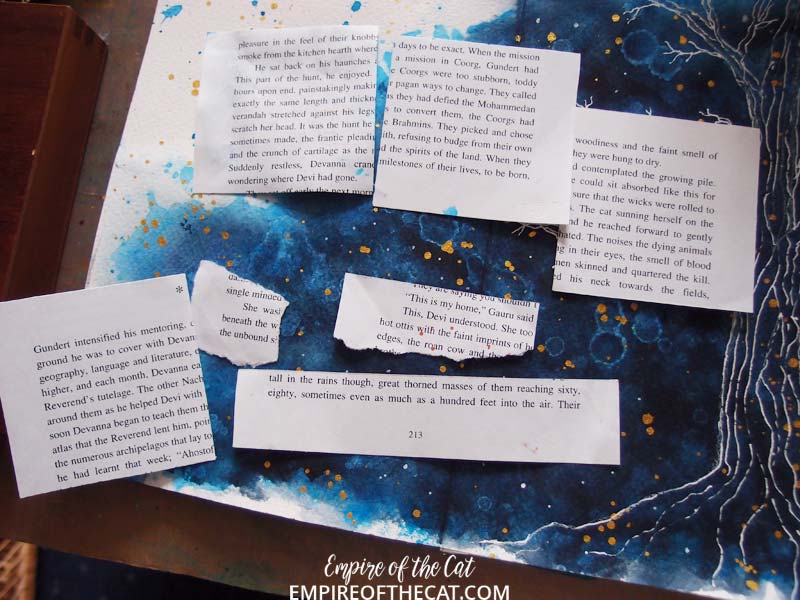 pleasure in the feel of their knobby
smoke from the kitchen hearth where
He sat back on his haunches a
This part of the hunt, he enjoyed.
hours upon end, painstakingly makin
exactly the same length and thickne
verandah stretched against his legs
scratch her head. It was the hunt he
sometimes made, the frantic pleadin
and the crunch of cartilage as the
Suddenly restless, Devanna crane
wondering where Devi had gone.
days to be exact. When the mission
a mission in Coorg, Gundert had
e Coorgs were too stubborn, toddy
r pagan ways to change. They called
as they had defied the Mohammedan
s to convert them, the Coorgs had
e Brahmins. They picked and chose
ith, refusing to budge from their own
d the spirits of the land. When they
milestones of their lives, to be born,
woodiness and the faint smell of
hey were hung to dry.
d contemplated the growing pile.
e could sit absorbed like this for
sure that the wicks were rolled to
. The cat sunning herself on the
nd he reached forward to gently
hated. The noises the dying animals
g in their eyes, the smell of blood
men skinned and quartered the kill.
d his neck towards the fields,
*
Gundert intensified his mentoring,
ground he was to cover with Devann
geography, language and literature,
higher, and each month, Devanna ea
Reverend's tutelage. The other Nach
around them as he helped Devi with
soon Devanna began to teach them th
atlas that the Reverend lent him, poin
the numerous archipelagos that lay to
he had learnt that week; "Ahostof
single minded
She wasi
beneath the w
the unbound s
They are saying you shouldn't
"This is my home," Gauru said
This, Devi understood. She too
hot ottis with the faint imprints of h
edges, the roan cow and the
tall in the rains though, great thorned masses of them reaching sixty,
eighty, sometimes even as much as a hundred feet into the air. Their
213
Empire of the Cat
EMPIREOFTHECAT.COM